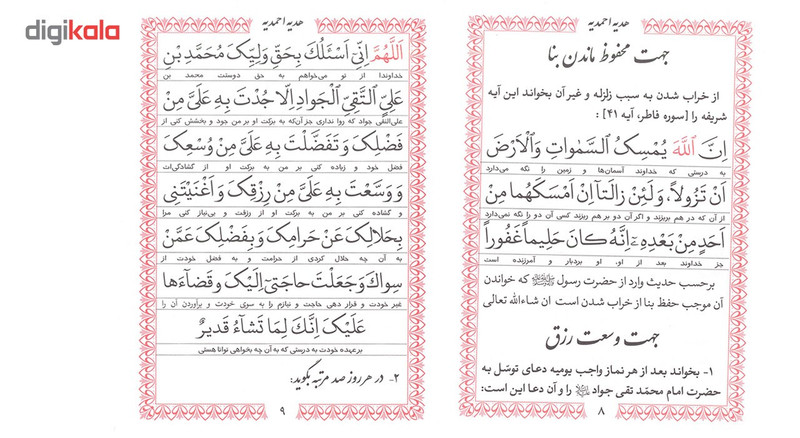 digikala
هدیه احمدیه
جهت محفوظ ماندن بنا
از خراب شدن به سبب زلزله و غیر آن بخواند این آیه
شریفه را [سوره فاطر، آیه ۴۱] :
اِنَّ اللّهَ یُمْسِکُ السَّمٰواتِ وَالْاَرْضَ
به درستی که خداوند آسمان‌ها و زمین را نگه می‌دارد
اَنْ تَزُولاً، وَلَئِنْ زالَتآاِنْ اَمْسَکَهُما مِنْ
از آن که در هم بریزند و اگر آن دو بر هم ریزند کسی آن دو را نگه نمی‌دارد
اَحَدٍ مِنْ بَعْدِهٖۤ اِنَّهُ کانَ حَلیماً غَفُوراً
جز خداوند بعد از او، او بردبار و آمرزنده است
برحسب حدیث وارد از حضرت رسول ﷺ که خواندن
آن موجب حفظ بنا از خراب شدن است ان شاءالله تعالی
جهت وسعت رزق
۱- بخواند بعد از هر نماز واجب یومیه دعای توسّل به
حضرت امام محمّد تقی جواد را و آن دعا این است:
۸
هدیه احمدیه
اَللّهُمَّ اِنّی اَسْئَلُکَ بِحَقِّ وَلِیِّکَ مُحَمَّدِ بْنِ
خداوندا از تو می‌خواهم به حق دوستت محمد بن
عَلِیٍّ التَّقِیِّ الْجَوادِ اِلّا جُدْتَ بِهٖ عَلَیَّ مِنْ
علی‌التقی جواد که روا نداری جز آن‌که به برکت او بر من جود و بخشش کنی از
فَضْلِکَ وَ تَفَضَّلْتَ بِهٖ عَلَیَّ مِنْ وُسْعِکَ
فضل خود و زیاده کنی بر من به برکت او از گشادگی‌ات
وَ وَسَّعْتَ بِهٖ عَلَیَّ مِنْ رِزْقِکَ وَ اَغْنَیْتَنی
و گشاده کنی بر من به برکت او از رزقت و بی‌نیاز کنی مرا
بِحَلالِکَ عَنْ حَرامِکَ وَ بِفَضْلِکَ عَمَّنْ
به آن چه حلال کردی از حرامت و به فضل خودت از
سِواکَ وَ جَعَلْتَ حاجَتی اِلَیْکَ وَ قَضآءَها
غیر خودت و قرار دهی حاجت و نیازم را به سوی خودت و برآوردن آن را
عَلَیْکَ اِنَّکَ لِما تَشآءُ قَدیرٌ
برعهده خودت به درستی که به آن چه بخواهی توانا هستی
۲- در هر روز صد مرتبه بگوید:
۹